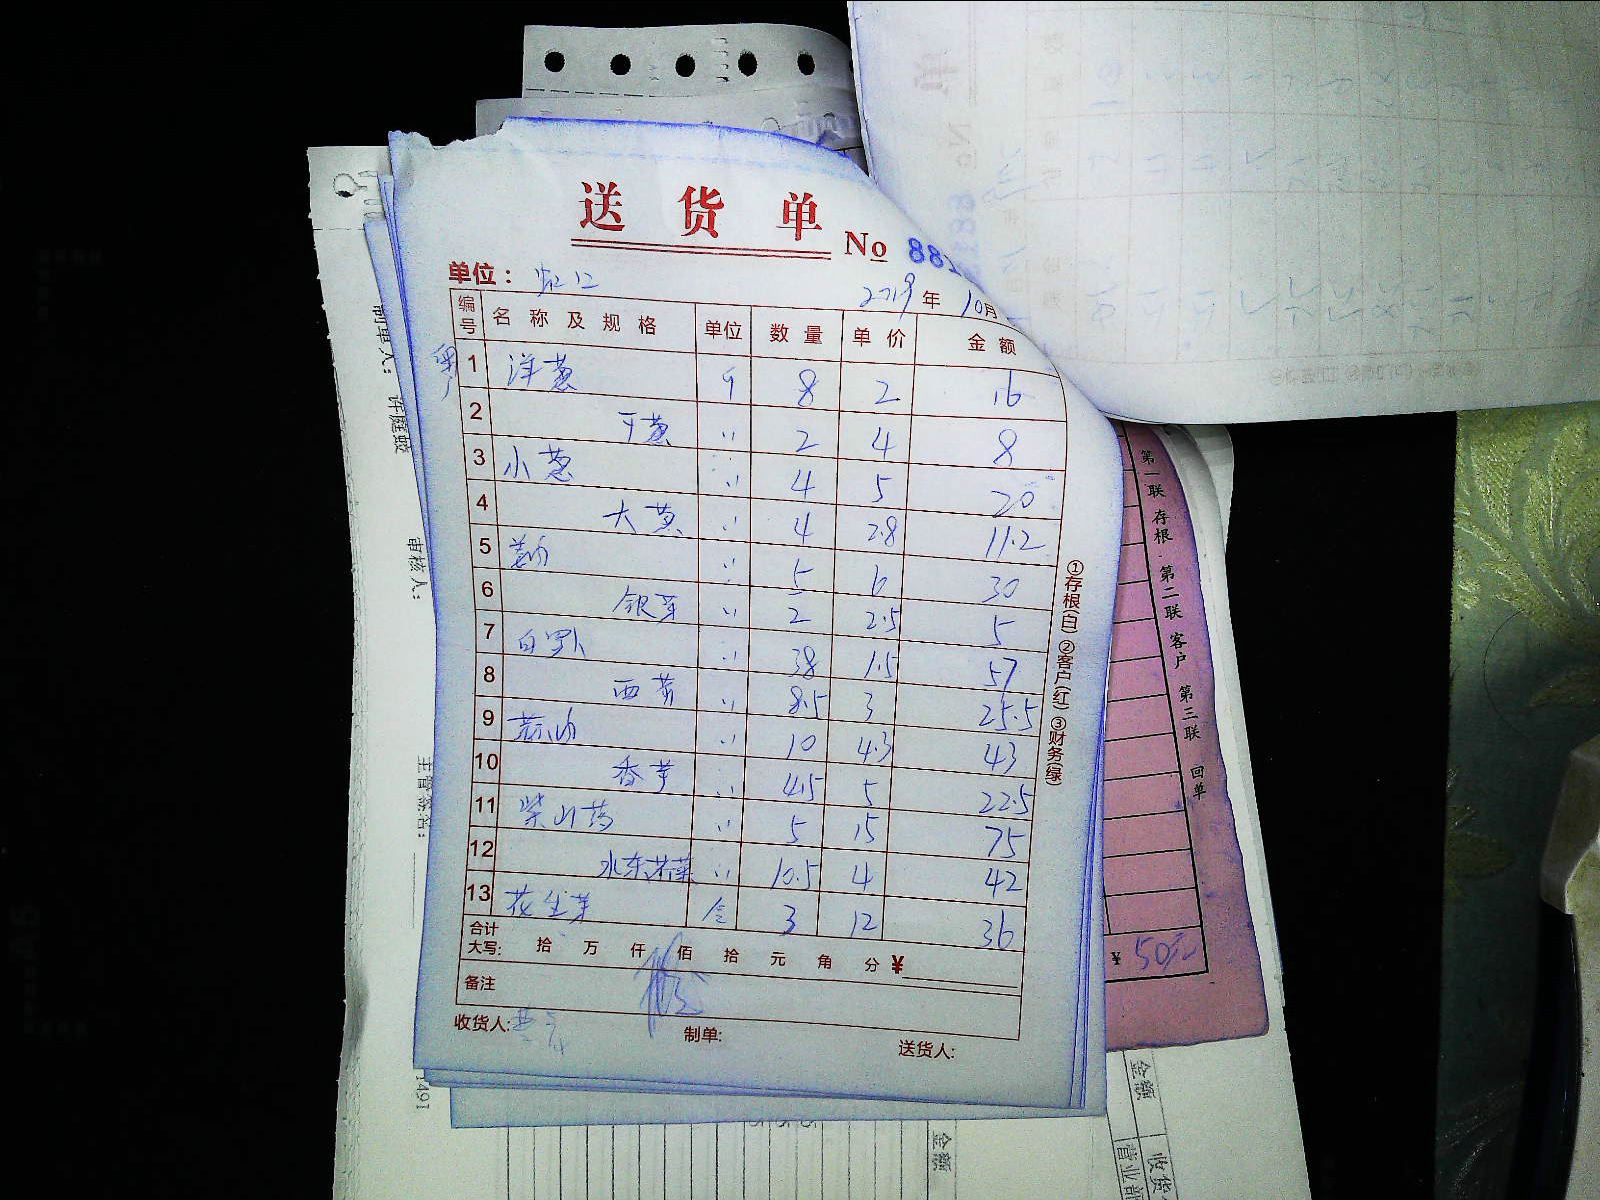 送 货 单 No 881
单位： 虹口 2019年 10月
编号 名称及规格 单位 数量 单价 金额
1 洋葱 斤 8 2 16
2 干葱 〃 2 4 8
3 小葱 〃 4 5 20
4 大黄 〃 4 2.8 11.2
5 〃 5 6 30
6 银芽 〃 2 2.5 5
7 白罗卜 〃 38 1.5 57
8 西芹 〃 8.5 3 25.5
9 〃 10 4.3 43
10 香芋 〃 4.5 5 22.5
11 紫山药 〃 5 15 75
12 水东芥菜 〃 10.5 4 42
13 花生芽 盒 3 12 36
合计
大写： 拾 万 仟 佰 拾 元 角 分 ¥
备注
收货人: 制单: 送货人:
①存根(白) ②客户(红) ③财务(绿)
第一联 存根 第二联 客户 第三联 回单
¥ 50元
制单人： 许庭蛟
审核人：
主管签名：
1491
金额
金额
收货
营业部